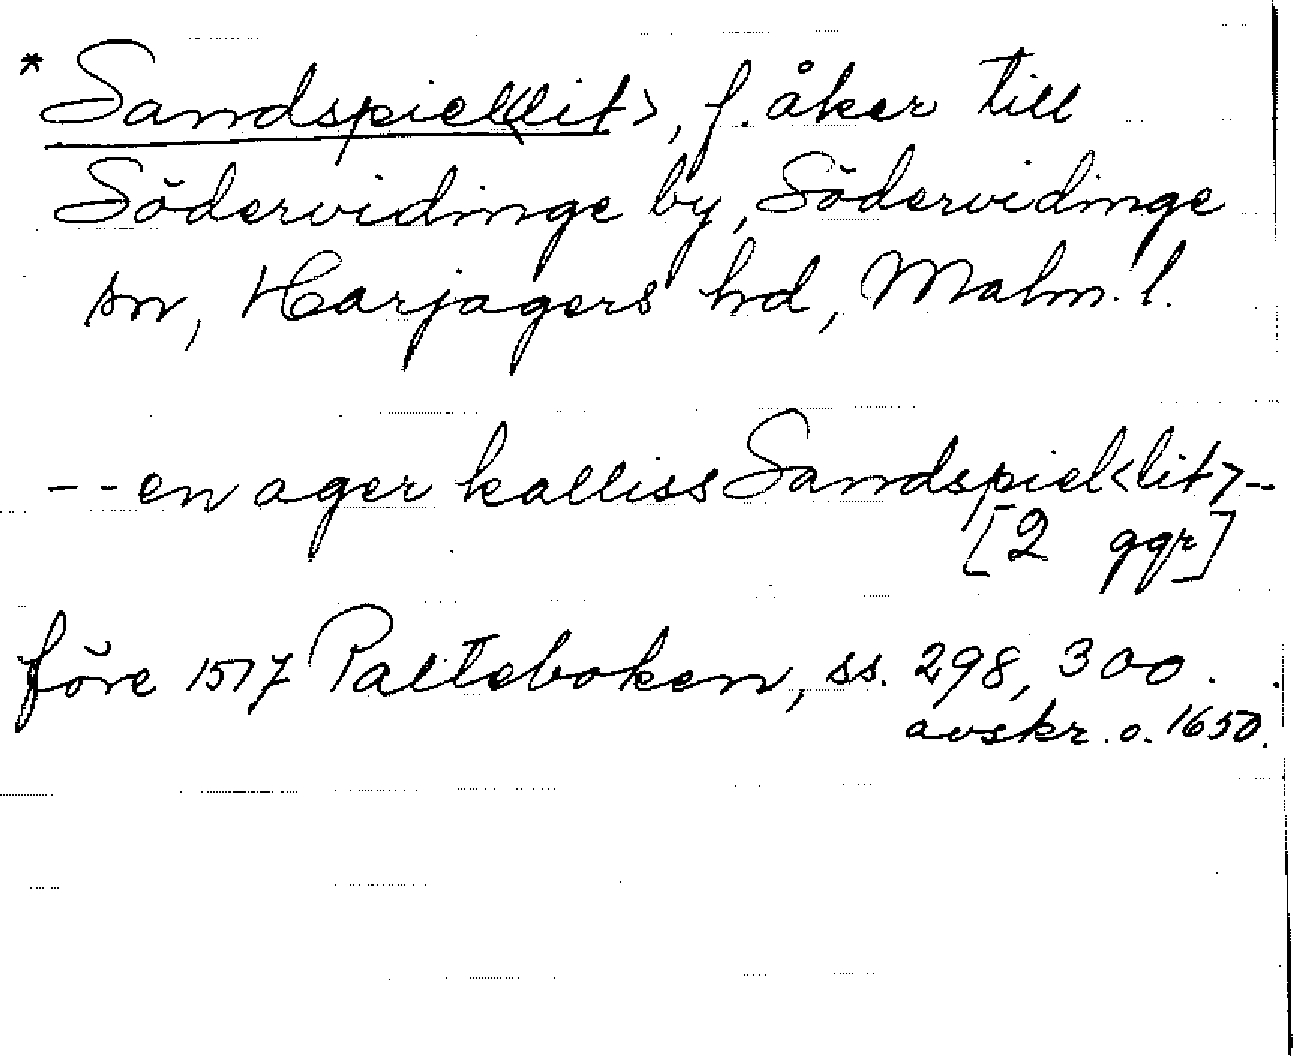 *Sandspiel<lit>, f. åker till
Södervidinge by, Södervidinge
sn, Harjagers hd, Malm. l.
-- en ager kalliss Sandspiel<lit> --
[2 ggr]
före 1517 Palteboken, ss. 298, 300.
avskr. o. 1650.